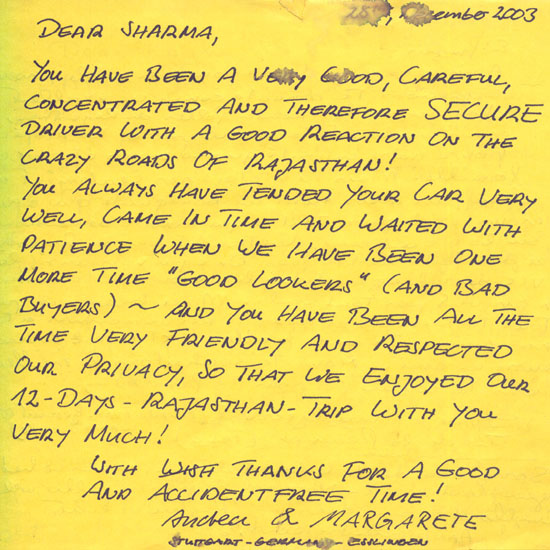 25th, December 2003
DEAR SHARMA,
YOU HAVE BEEN A VERY GOOD, CAREFUL,
CONCENTRATED AND THEREFORE SECURE
DRIVER WITH A GOOD REACTION ON THE
CRAZY ROADS OF RAJASTHAN!
YOU ALWAYS HAVE TENDED YOUR CAR VERY
WELL, CAME IN TIME AND WAITED WITH
PATIENCE WHEN WE HAVE BEEN ONE
MORE TIME "GOOD LOOKERS" (AND BAD
BUYERS) ~ AND YOU HAVE BEEN ALL THE
TIME VERY FRIENDLY AND RESPECTED
OUR PRIVACY, SO THAT WE ENJOYED OUR
12-DAYS-RAJASTHAN-TRIP WITH YOU
VERY MUCH!
WITH WISH THANKS FOR A GOOD
AND ACCIDENTFREE TIME!
Andrea & MARGARETE
STUTTGART-GERMANY-ESSLINGEN